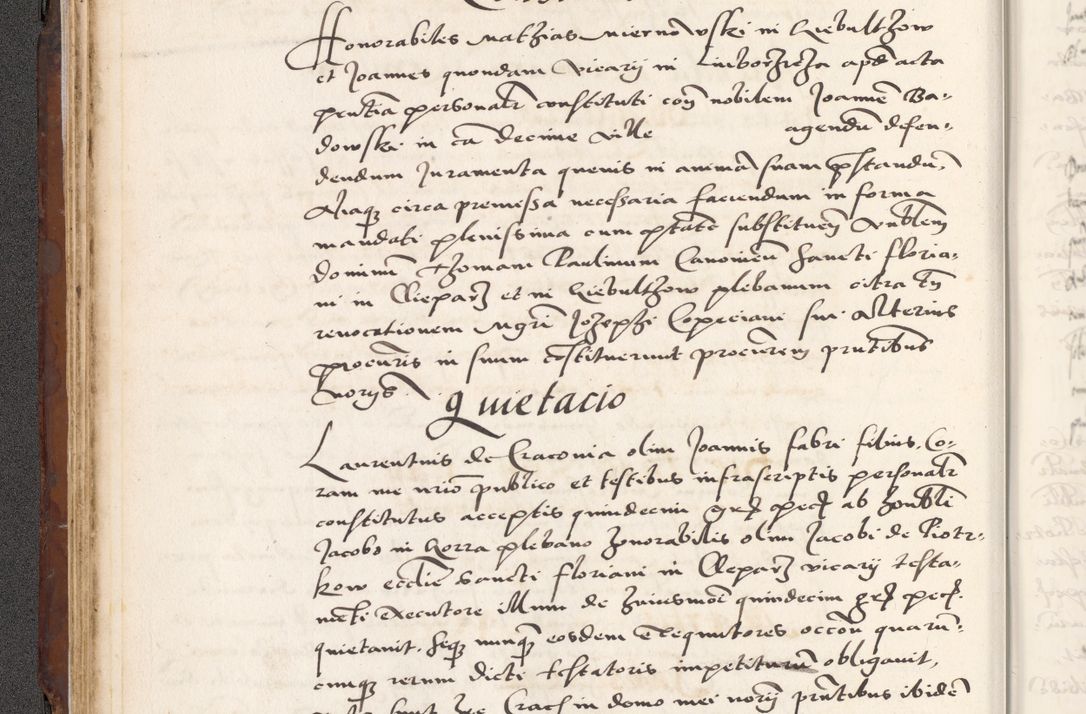 Honorabiles Mathias Miernowski in Giebulthow
et Joannes quondam vicarij in Luborzicza apd acta
pntia personalr constituti con nobilem Joanne Ba-
dowski in ca decime ville agendu defen-
dendum Juramenta quevis in anima suam pstandu,
Aliaq circa premissa necessaria faciendum in forma
mandati plenissima cum ptate substituen venblem
dominu Thomam Paulinum Canonicu sancti Floria-
ni in Cleparz et in Giebulthow plebanum citra tn
revocationem Mgri Josephi Copeciani sui alterius
procuris in suum constituerunt procurem pntibus
norijs
Quietacio
Laurentius de Craconia olim Joannis fabri filius, Co-
ram me nrio publico et testibus infrascriptis personalr
constitutus acceptis quindecim grz pec ab honbli
Jacobo in Gorra plebano honorabilis olim Jacobi de Piotr-
kow ecclie sancti Floriani in Cleparz vicarij testa-
menti executore illum de huiusmoi quindecim grz pec.
quietavit, seq nunq eosdem exequutores occon quaru-
cunq rerum dicti testatoris impetiturum obligavit,
Crac in domo mei norij pntibus ibide